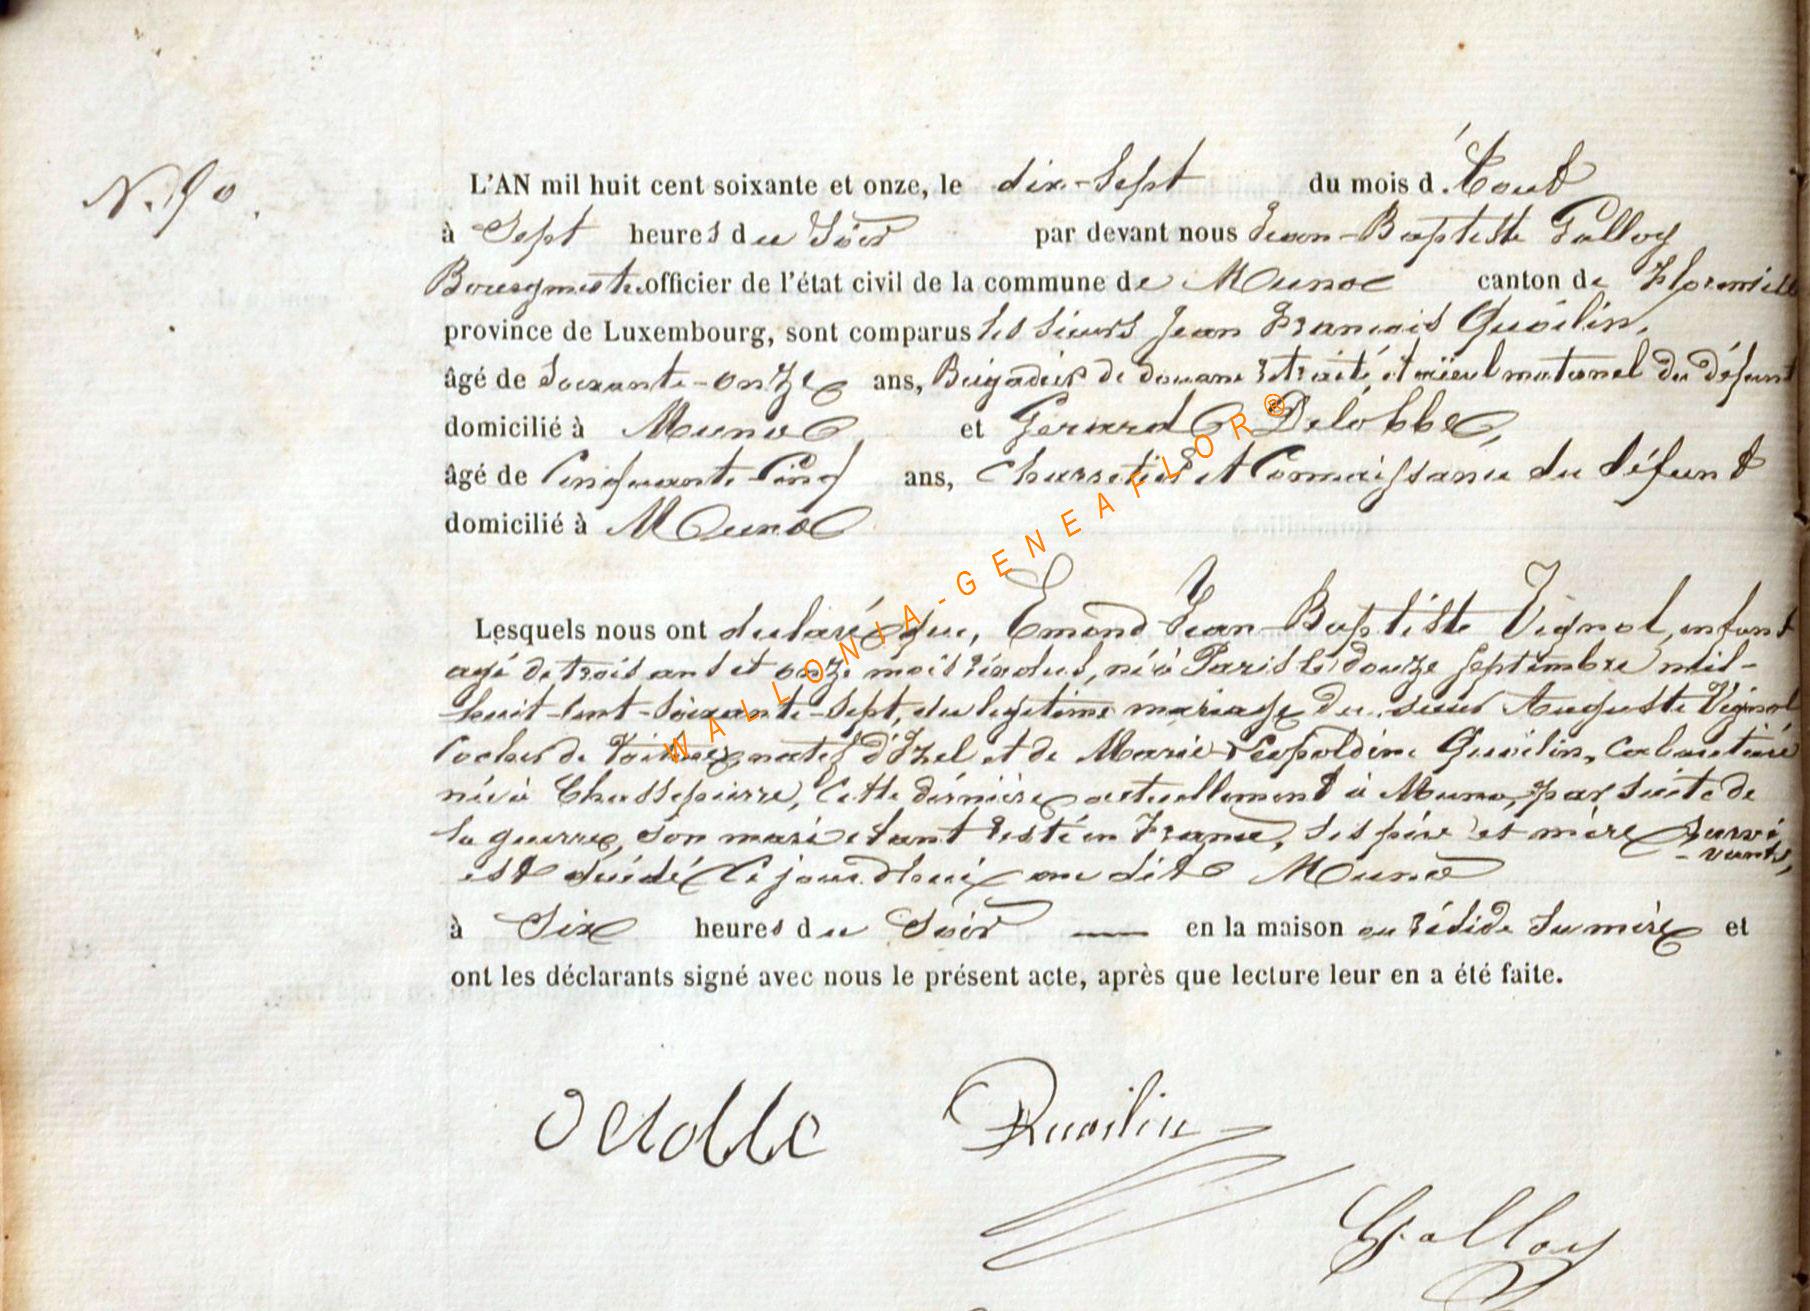 N. 90.
L'AN mil huit cent soixante et onze, le dix-Sept du mois d'Aout
à Sept heures du Soir par devant nous Jean-Baptiste Galloy
Bourgmestre officier de l'état civil de la commune de Muno canton de Florenville
province de Luxembourg, sont comparus les sieurs Jean François Quoilin,
âgé de Soixante-onze ans, Brigadier de douane retraité, et aïeul maternel du défunt
domicilié à Muno, et Gerard Delobbe,
âgé de Cinquante-Cinq ans, Charretier et Connaissance du défunt
domicilié à Muno
Lesquels nous ont declaré que, Emond Jean Baptiste Vignol, enfant
agé de trois ans et onze mois révolus, né à Paris le douze Septembre mil-
huit-Cent-Soixante-Sept, du legitime mariage du sieur Auguste Vignol
Cocher de Voiture, natif d'Izel et de Marie Leopoldine Quoilin, Cabaretière
née à Chassepierre, Cette dernière actuellement à Muno, par suite de
la guerre, son mari etant resté en France, Ses père et mère Survi
-vants,
est décédé Ce jourd'hui au dit Muno
à Six heures du Soir — en la maison ou réside Sa mère et
ont les déclarants signé avec nous le présent acte, après que lecture leur en a été faite.
Delobbe Quoilin
Galloy
WALLONIA-GENEAFLOR®